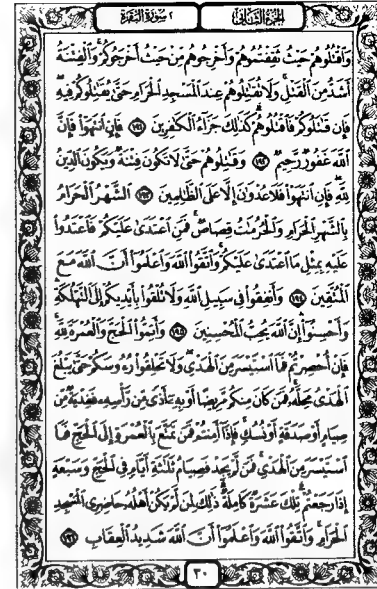 الجزء الثاني
٢ سورة البقرة
وَٱقْتُلُوهُمْ حَيْثُ ثَقِفْتُمُوهُمْ وَأَخْرِجُوهُم مِّنْ حَيْثُ أَخْرَجُوكُمْ وَٱلْفِتْنَةُ
أَشَدُّ مِنَ ٱلْقَتْلِ وَلَا تُقَٰتِلُوهُمْ عِندَ ٱلْمَسْجِدِ ٱلْحَرَامِ حَتَّىٰ يُقَٰتِلُوكُمْ فِيهِ
فَإِن قَٰتَلُوكُمْ فَٱقْتُلُوهُمْ كَذَٰلِكَ جَزَآءُ ٱلْكَٰفِرِينَ ١٩١ فَإِنِ ٱنتَهَوْا۟ فَإِنَّ
ٱللَّهَ غَفُورٌ رَّحِيمٌ ١٩٢ وَقَٰتِلُوهُمْ حَتَّىٰ لَا تَكُونَ فِتْنَةٌ وَيَكُونَ ٱلدِّينُ
لِلَّهِ فَإِنِ ٱنتَهَوْا۟ فَلَا عُدْوَٰنَ إِلَّا عَلَى ٱلظَّٰلِمِينَ ١٩٣ ٱلشَّهْرُ ٱلْحَرَامُ
بِٱلشَّهْرِ ٱلْحَرَامِ وَٱلْحُرُمَٰتُ قِصَاصٌ فَمَنِ ٱعْتَدَىٰ عَلَيْكُمْ فَٱعْتَدُوا۟
عَلَيْهِ بِمِثْلِ مَا ٱعْتَدَىٰ عَلَيْكُمْ وَٱتَّقُوا۟ ٱللَّهَ وَٱعْلَمُوٓا۟ أَنَّ ٱللَّهَ مَعَ
ٱلْمُتَّقِينَ ١٩٤ وَأَنفِقُوا۟ فِى سَبِيلِ ٱللَّهِ وَلَا تُلْقُوا۟ بِأَيْدِيكُمْ إِلَى ٱلتَّهْلُكَةِ
وَأَحْسِنُوٓا۟ إِنَّ ٱللَّهَ يُحِبُّ ٱلْمُحْسِنِينَ ١٩٥ وَأَتِمُّوا۟ ٱلْحَجَّ وَٱلْعُمْرَةَ لِلَّهِ
فَإِنْ أُحْصِرْتُمْ فَمَا ٱسْتَيْسَرَ مِنَ ٱلْهَدْىِ وَلَا تَحْلِقُوا۟ رُءُوسَكُمْ حَتَّىٰ يَبْلُغَ
ٱلْهَدْىُ مَحِلَّهُۥ فَمَن كَانَ مِنكُم مَّرِيضًا أَوْ بِهِۦٓ أَذًى مِّن رَّأْسِهِۦ فَفِدْيَةٌ مِّن
صِيَامٍ أَوْ صَدَقَةٍ أَوْ نُسُكٍ فَإِذَآ أَمِنتُمْ فَمَن تَمَتَّعَ بِٱلْعُمْرَةِ إِلَى ٱلْحَجِّ فَمَا
ٱسْتَيْسَرَ مِنَ ٱلْهَدْىِ فَمَن لَّمْ يَجِدْ فَصِيَامُ ثَلَٰثَةِ أَيَّامٍ فِى ٱلْحَجِّ وَسَبْعَةٍ
إِذَا رَجَعْتُمْ تِلْكَ عَشَرَةٌ كَامِلَةٌ ذَٰلِكَ لِمَن لَّمْ يَكُنْ أَهْلُهُۥ حَاضِرِى ٱلْمَسْجِدِ
ٱلْحَرَامِ وَٱتَّقُوا۟ ٱللَّهَ وَٱعْلَمُوٓا۟ أَنَّ ٱللَّهَ شَدِيدُ ٱلْعِقَابِ ١٩٦
٣٠